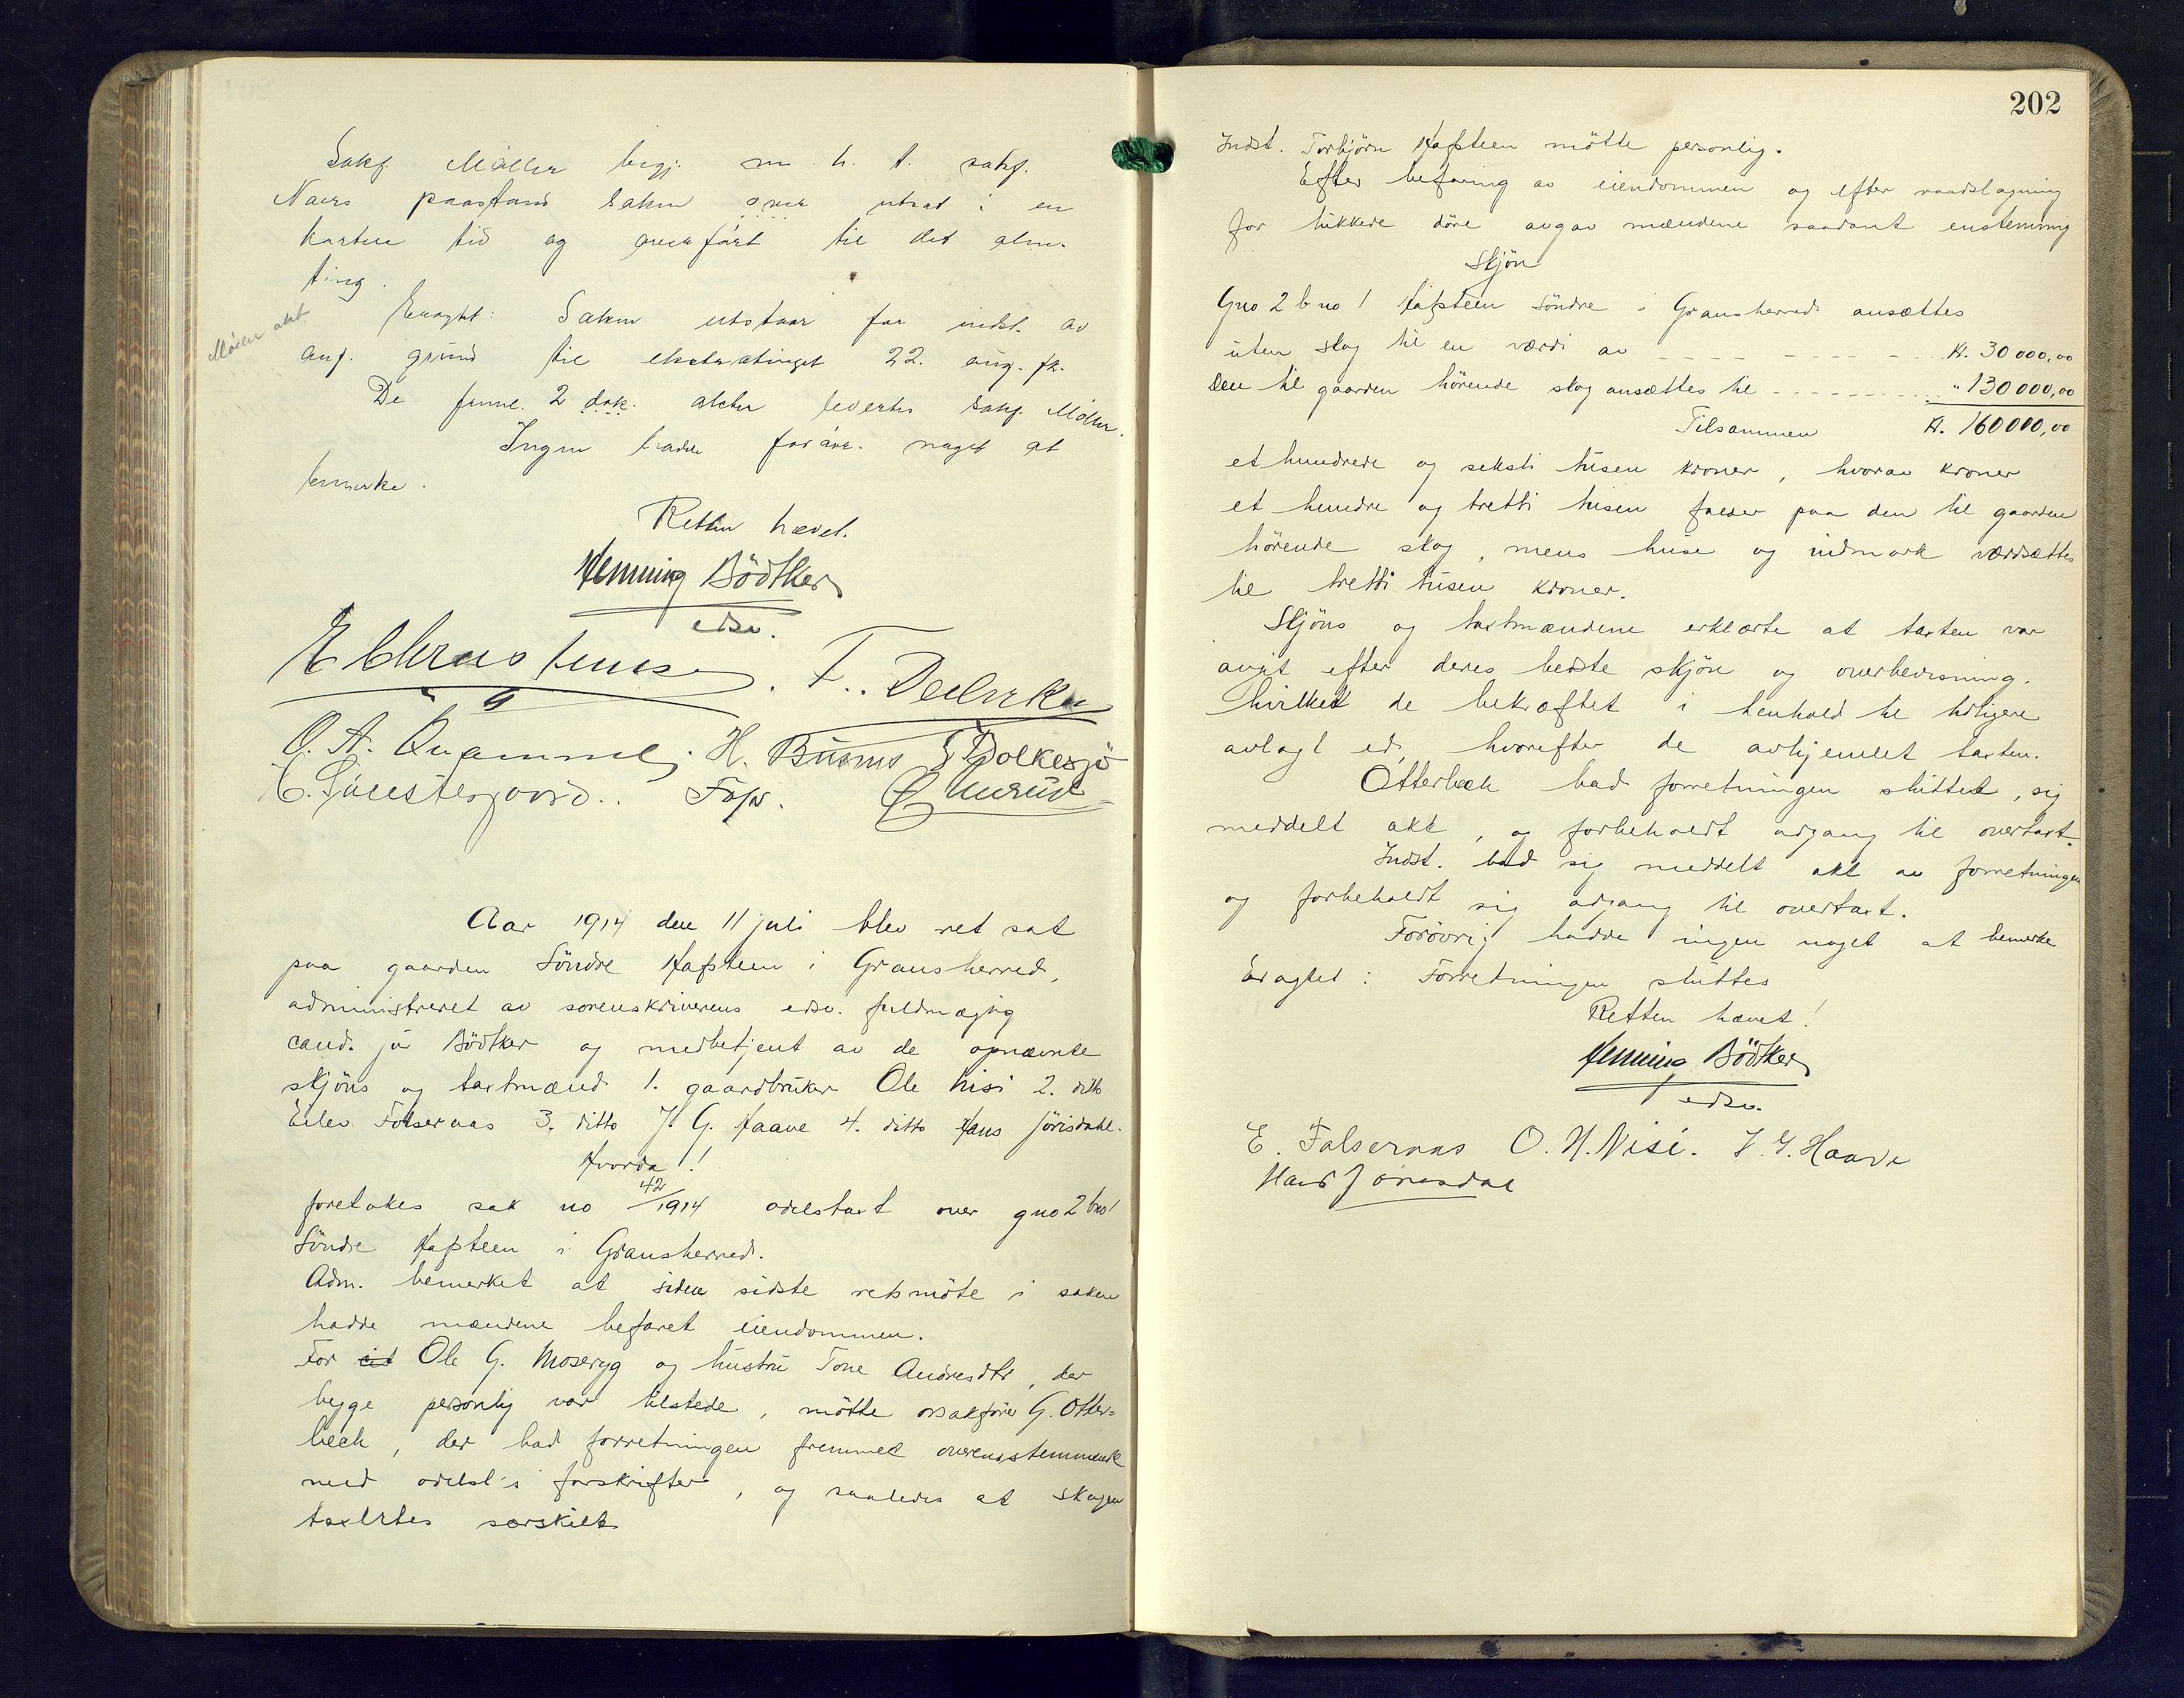 Sakf. Möller begj. m. h. t. sakf.
Naers paastand saken utsat i en
kortere tid og til det alm.
ting.
Eragtet: Saken utstaar for indst. av
Möller akt
anf. grund til ekstratinget 22. aug. fk.
De freml. 2 dok. akter levertes sakf. Möller.
Ingen hadde forövr. noget at
bemerke.
Retten hævet.
Henning Bödtker
edsv.
E Christensen. F.
O. A. Quammen. H. Busnes Bolkesjö
Fopr.
Aar 1914 den 11 juli blev ret sat
paa gaarden Söndre Hafsteen i Gransherred,
administreret av sorenskriverens edsv. fuldmægtig
cand. jur Bödtker og medbetjent av de opnævnte
skjöns og taxtmænd 1. gaardbruker Ole Nisi 2. ditto
Eilev Folseraas 3. ditto J G. Haave 4. ditto Hans Jörisdahl.
Hvorda!!
foretokes sak no 42/1914 odelstaxt over gno 2 bno 1
Söndre Hafsteen i Gransherred.
Adm. bemerket at siden sidste retsmöte i saken
hadde mændene befaret eiendommen.
For cit Ole G. Moseryg og hustru Tone Andresdtr, der
begge personlig var tilstede, mötte o.r.sakförer G. Otter=
bech, der bad forretningen fremmet overensstemmende
med odelsl's forskrifter, og saaledes at skogen
taxertes særskilt
202
Indst. Torbjörn Hafsteen mötte personlig.
Efter befaring av eiendommen og efter raadslagning
for lukkede döre avgav mændene saadant enstemmig
Skjön
Gno 2 b no 1 Hafsteen Söndre i Gransherred ansættes
uten skog til en værdi av - - - - - Kr. 30 000,00
Den til gaarden hörende skog ansættes til - - - - - " 130 000,00
Tilsammen Kr. 160 000,00
et hundrede og seksti tusen kroner, hvorav kroner
et hundre og tretti tusen falder paa den til gaarden
hörende skog, mens huse og indmark værdsættes
til tretti tusen kroner.
Skjöns og taxtmændene erklærte at taxten var
avgit efter deres bedste skjön og overbevisning.
hvilket de bekræftet i henhold til tidligere
avlagt ed, hvorefter de avhjemlet taxten.
Otterbech bad forretningen sluttet, sig
meddelt akt, og forbeholdt adgang til overtaxt.
Indst. bad sig meddelt akt av forretningen
og forbeholdt sig adgang til overtaxt.
Forövrig hadde ingen noget at bemerke
Eragtet: Forretningen sluttes
Retten hævet!
Henning Bödtker
edsv.
E. Folseraas O. H. Nisi. J. G. Haave
Hans Jörisdal